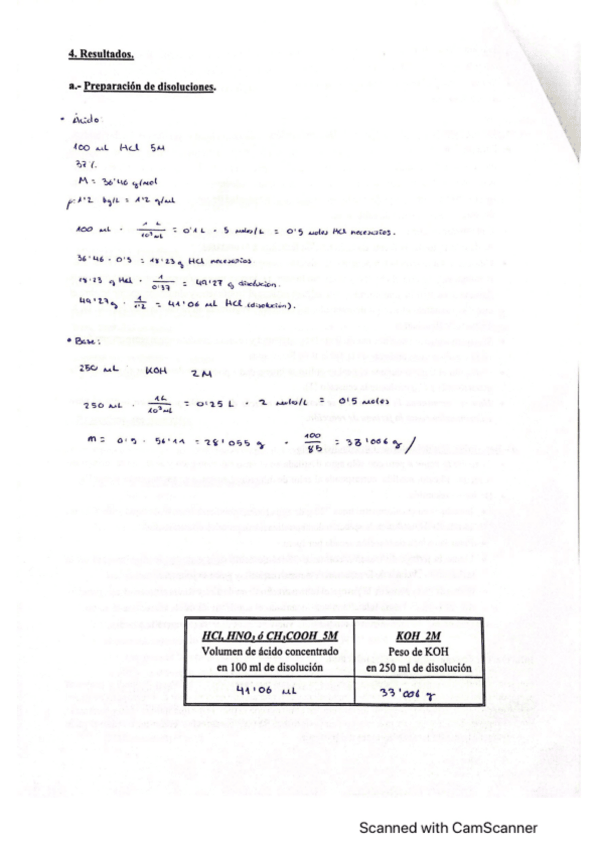 4. Resultados.
a.- Preparación de disoluciones.
• Ácido:
100 mL HCl 5M
37%
M = 36'46 g/mol
ρ: 1'2 kg/L = 1'2 g/mL
100 mL · 1 L / 10³ mL = 0'1 L · 5 moles/L = 0'5 moles HCl necesarios.
36'46 · 0'5 = 18'23 g HCl necesarios
18'23 g HCl · 1 / 0'37 = 49'27 g disolución.
49'27 g · 1 / 1'2 = 41'06 mL HCl (disolución).
• Base:
250 mL KOH 2M
250 mL · 1L / 10³ mL = 0'25 L · 2 moles/L = 0'5 moles
m = 0'5 · 56'11 = 28'055 g · 100 / 85 = 33'006 g /
HCl, HNO₃ ó CH₃COOH 5M
Volumen de ácido concentrado
en 100 ml de disolución
KOH 2M
Peso de KOH
en 250 ml de disolución
41'06 mL
33'006 g
Scanned with CamScanner